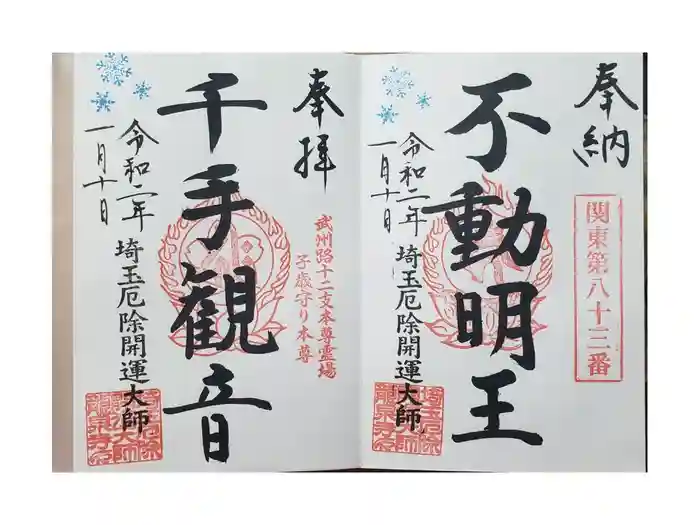 奉納
関東第八十三番
不動明王
令和二年
一月十日
埼玉厄除開運大師
奉拝
武州路十二支本尊霊場
子歳守り本尊
千手観音
令和二年
一月十日
埼玉厄除開運大師